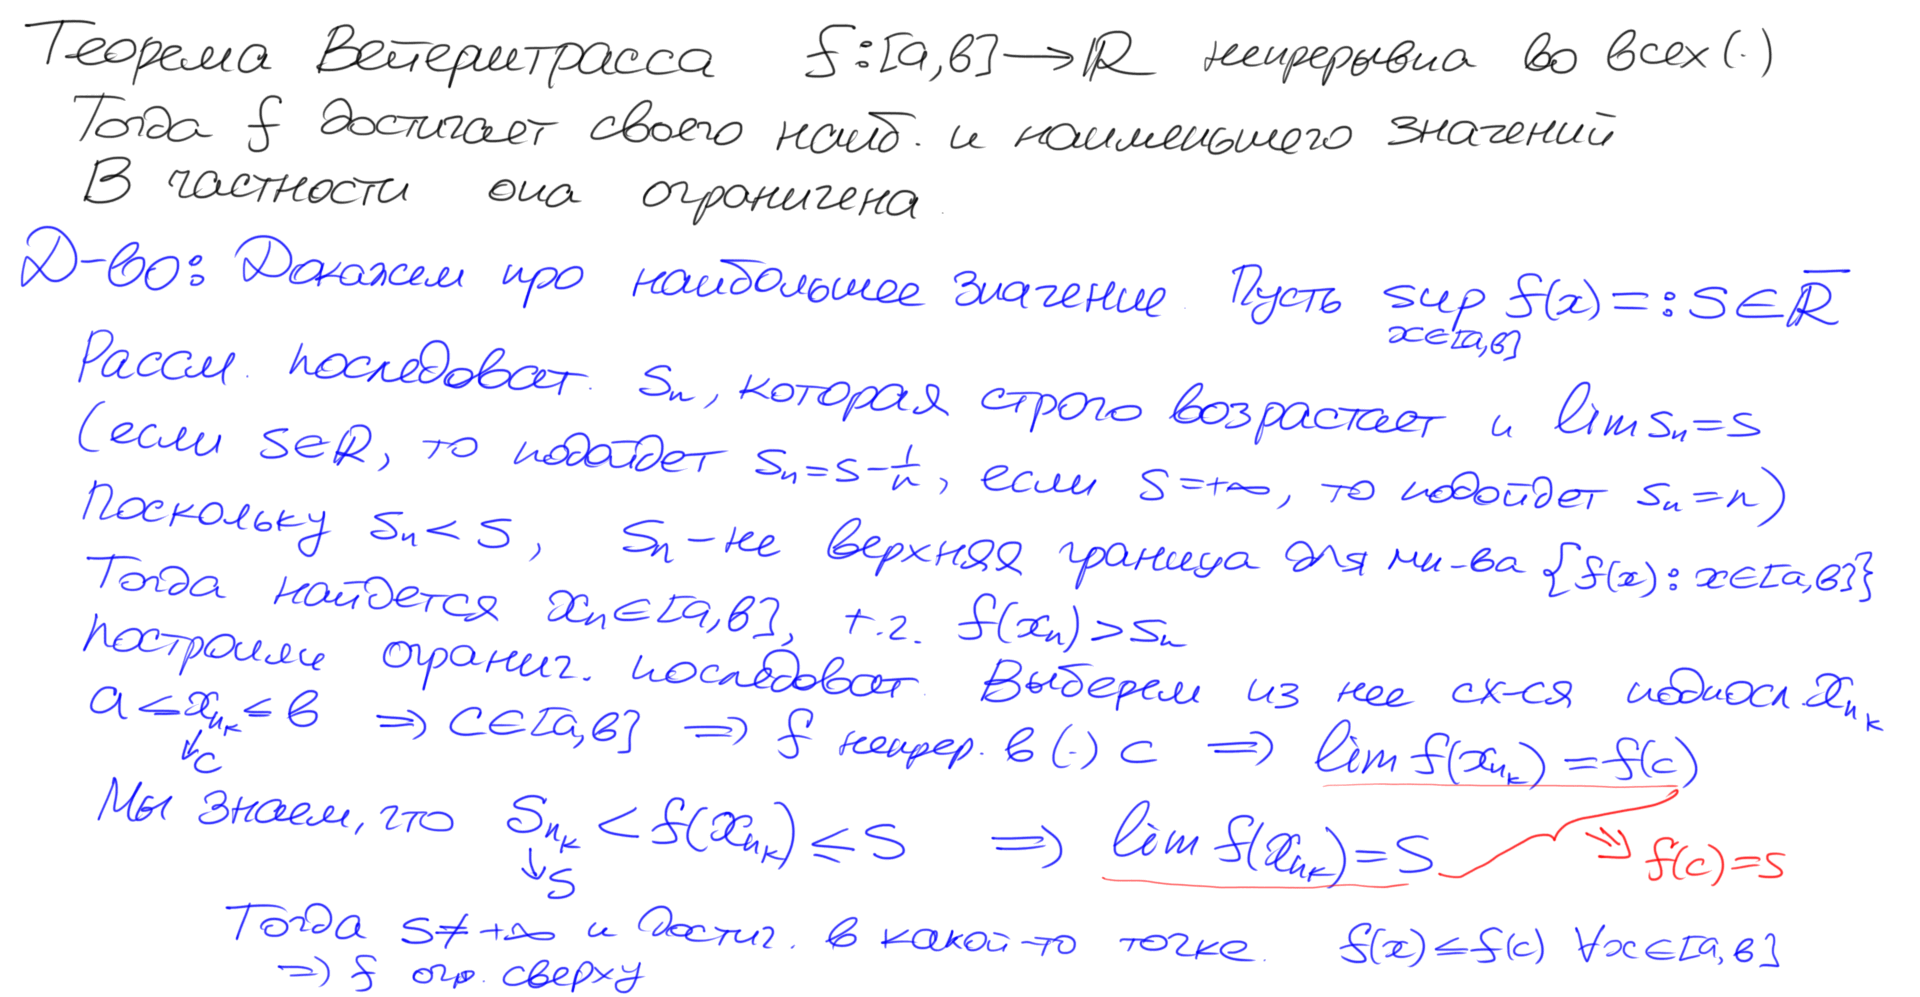 Теорема Вейерштрасса f:[a,b]→ℝ непрерывна во всех (·)
Тогда f достигает своего наиб. и наименьшего значений
В частности она ограничена.
Д-во: Докажем про наибольшее значение. Пусть sup f(x)=:S∈ℝ̅
x∈[a,b]
Рассм. последоват. Sₙ, которая строго возрастает и lim Sₙ=S
(если S∈ℝ, то подойдет Sₙ=S-1/n, если S=+∞, то подойдет Sₙ=n)
Поскольку Sₙ<S, Sₙ-не верхняя граница для мн-ва {f(x): x∈[a,b]}
Тогда найдется xₙ∈[a,b], т.ч. f(xₙ)>Sₙ
Построили огранич. последоват. Выберем из нее сх-ся подпосл. x_{n_k}
a≤x_{n_k}≤b ⇒ c∈[a,b] ⇒ f непрер. в (·) c ⇒ lim f(x_{n_k})=f(c)
↓
c
Мы знаем, что S_{n_k}<f(x_{n_k})≤S ⇒ lim f(x_{n_k})=S ⇒ f(c)=S
↓
S
Тогда S≠+∞ и достиг. в какой-то точке. f(x)≤f(c) ∀x∈[a,b]
⇒ f огр. сверху